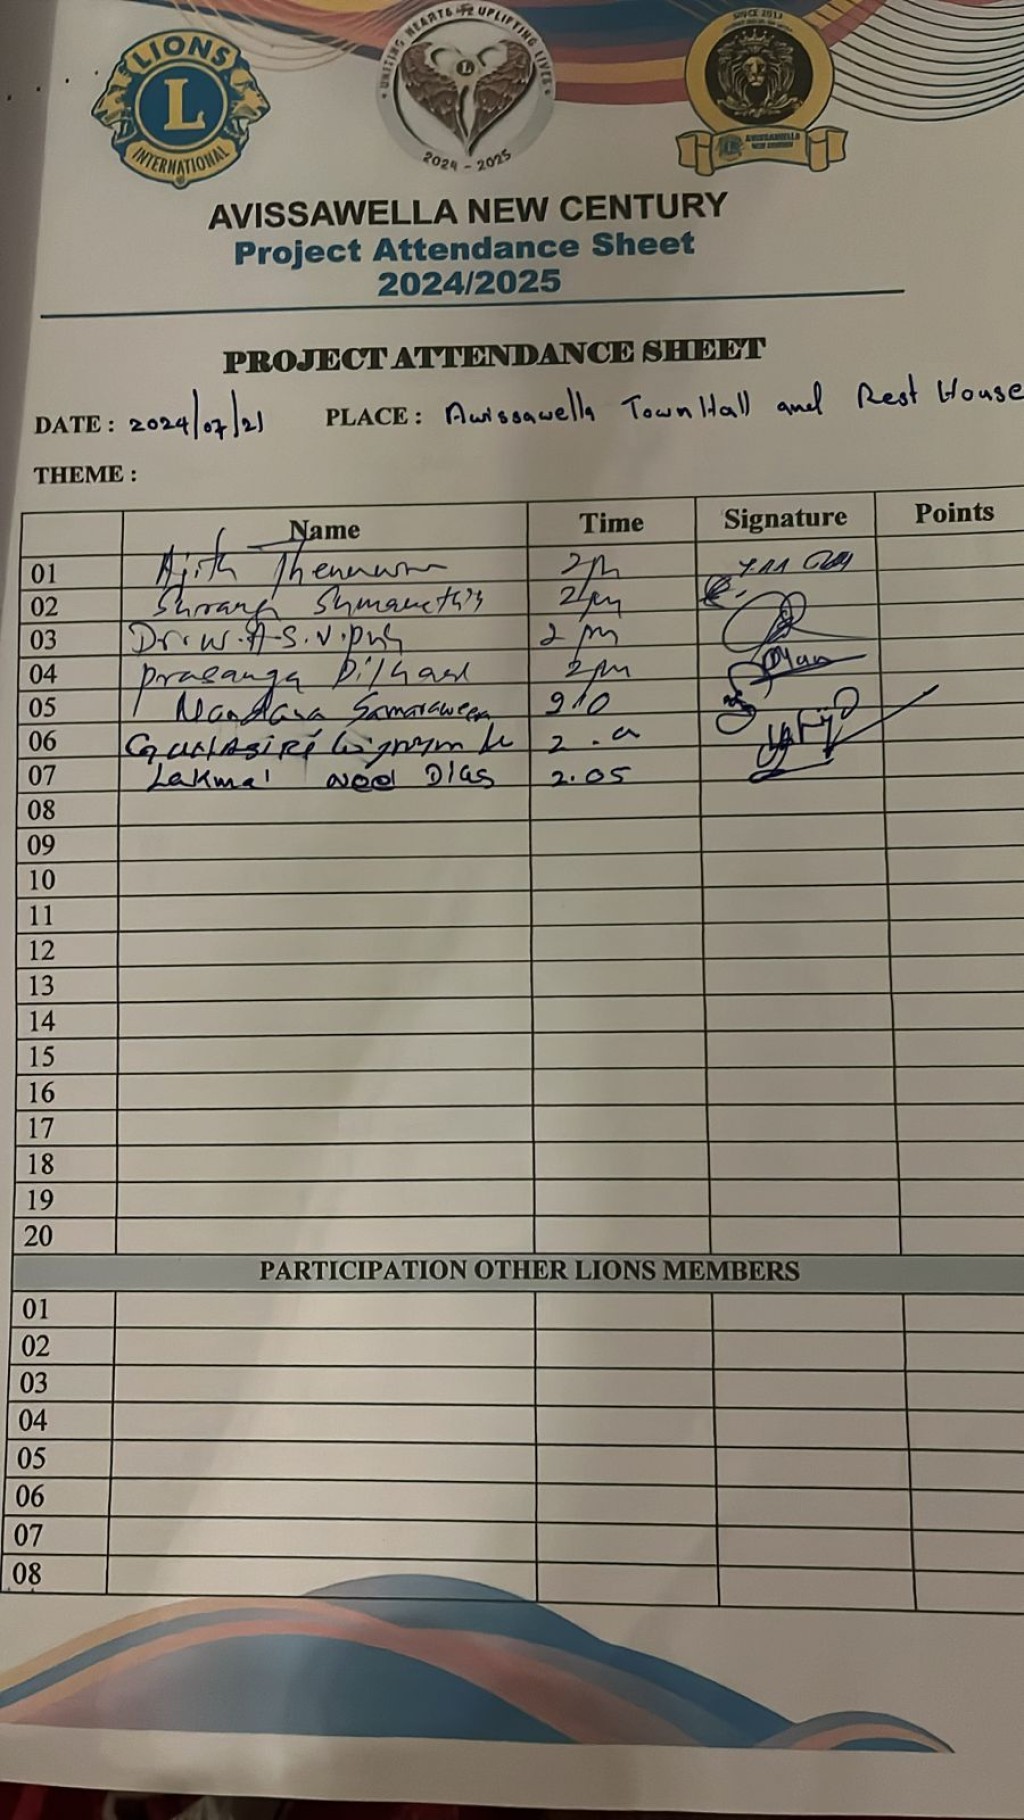 LIONS
L
INTERNATIONAL
UNITING HEARTS UPLIFTING LIVES
L
2024 - 2025
SINCE 2017
AVISSAWELLA
NEW CENTURY
AVISSAWELLA NEW CENTURY
Project Attendance Sheet
2024/2025
PROJECT ATTENDANCE SHEET
DATE : 2024/07/21 PLACE : Avissawella Town Hall and Rest House
THEME :
Name Time Signature Points
01 Ajith 2pm
02 2pm
03 Dr. W. A. S. V. 2 pm
04 Prasanga 2pm
05 Mandara Samaraweera
06
07 Lakmal Dias 2.05
08
09
10
11
12
13
14
15
16
17
18
19
20
PARTICIPATION OTHER LIONS MEMBERS
01
02
03
04
05
06
07
08